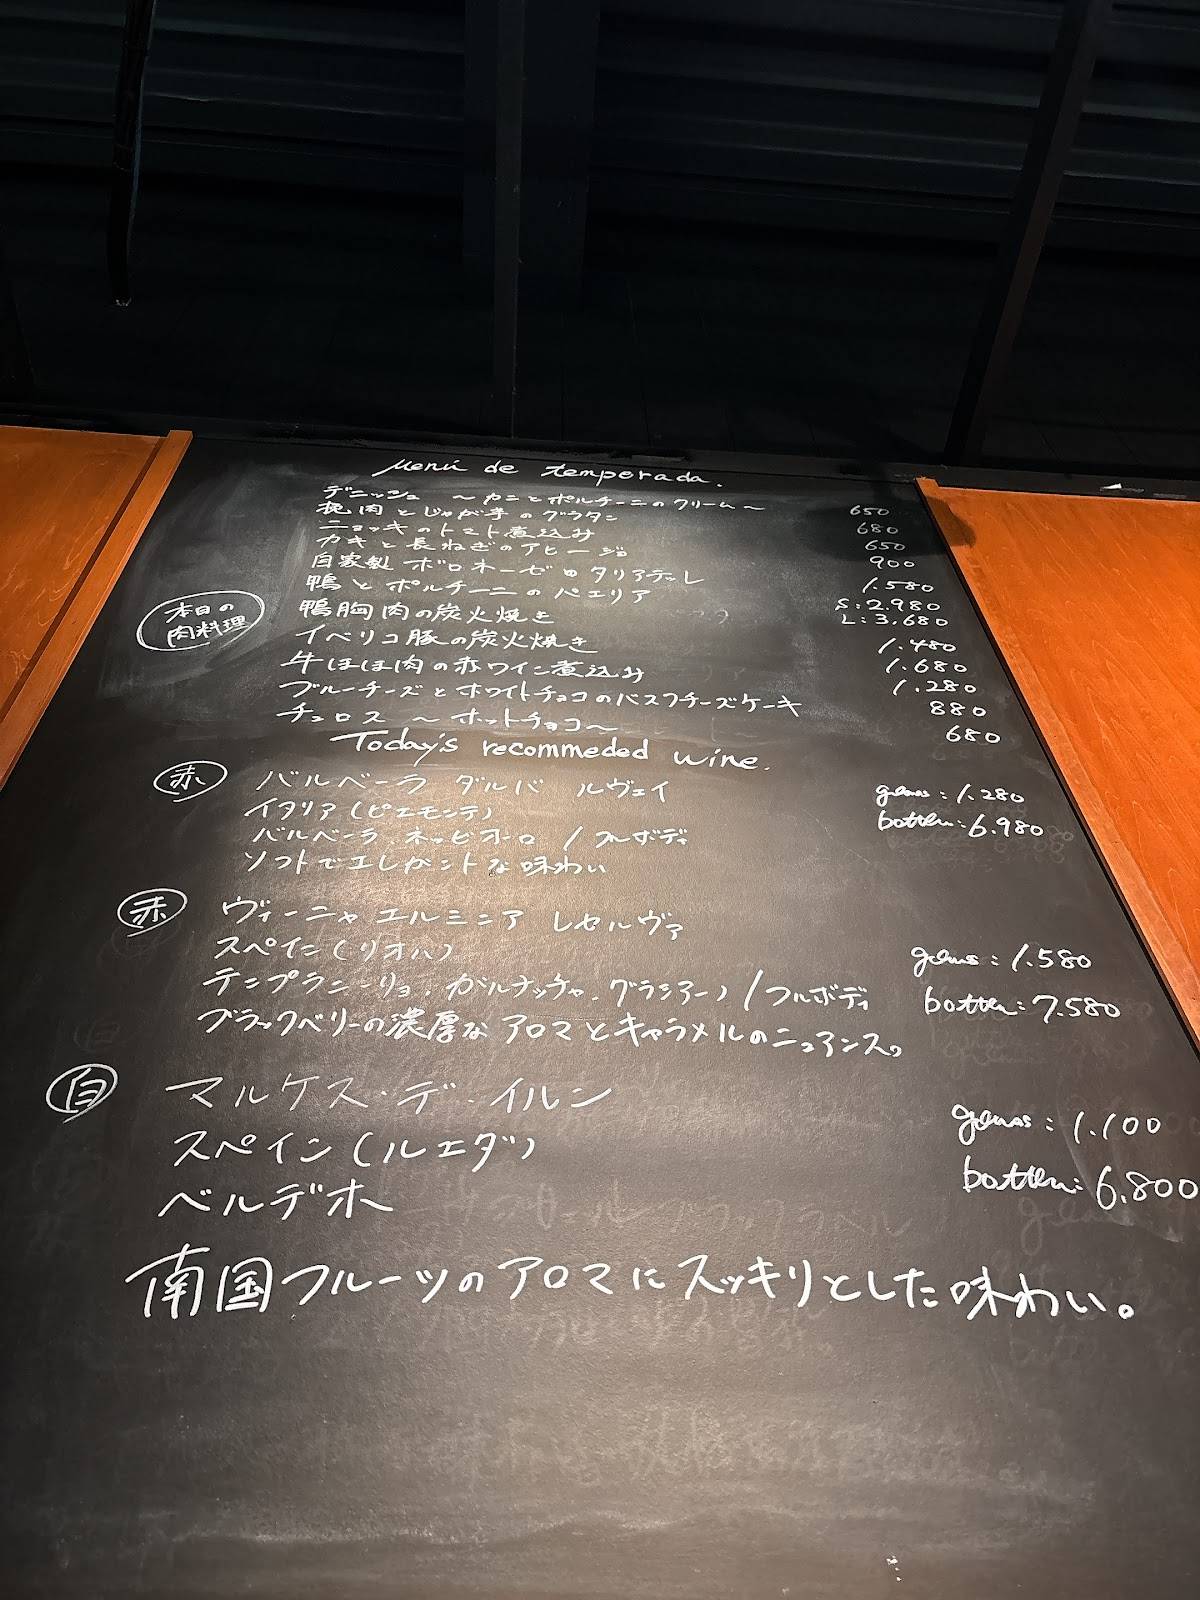 Menú de temporada.
デニッシュ 〜カニとポルチーニのクリーム〜 650
挽肉とじゃが芋のグラタン 680
ニョッキのトマト煮込み 650
カキと長ねぎのアヒージョ 900
自家製ボロネーゼのタリアテッレ 1.580
鴨とポルチーニのパエリア S:2.980
L:3.680
本日の
肉料理
鴨胸肉の炭火焼き 1.480
イベリコ豚の炭火焼き 1.680
牛ほほ肉の赤ワイン煮込み 1.280
ブルーチーズとホワイトチョコのバスクチーズケーキ 880
チュロス 〜ホットチョコ〜 680
Today's recommeded wine.
赤 バルベーラ ダルバ ルヴェイ glass:1.280
イタリア(ピエモンテ) bottle:6.980
バルベーラ.ネッビオーロ/フルボディ
ソフトでエレガントな味わい
赤 ヴィーニャ エルミニア レセルヴァ
スペイン(リオハ) glass:1.580
テンプラニーリョ.ガルナッチャ.グラシアーノ/フルボディ bottle:7.580
ブラックベリーの濃厚なアロマとキャラメルのニュアンス。
白 マルケス・デ・イルン glass:1.100
スペイン(ルエダ) bottle:6.800
ベルデホ
南国フルーツのアロマにスッキリとした味わい。